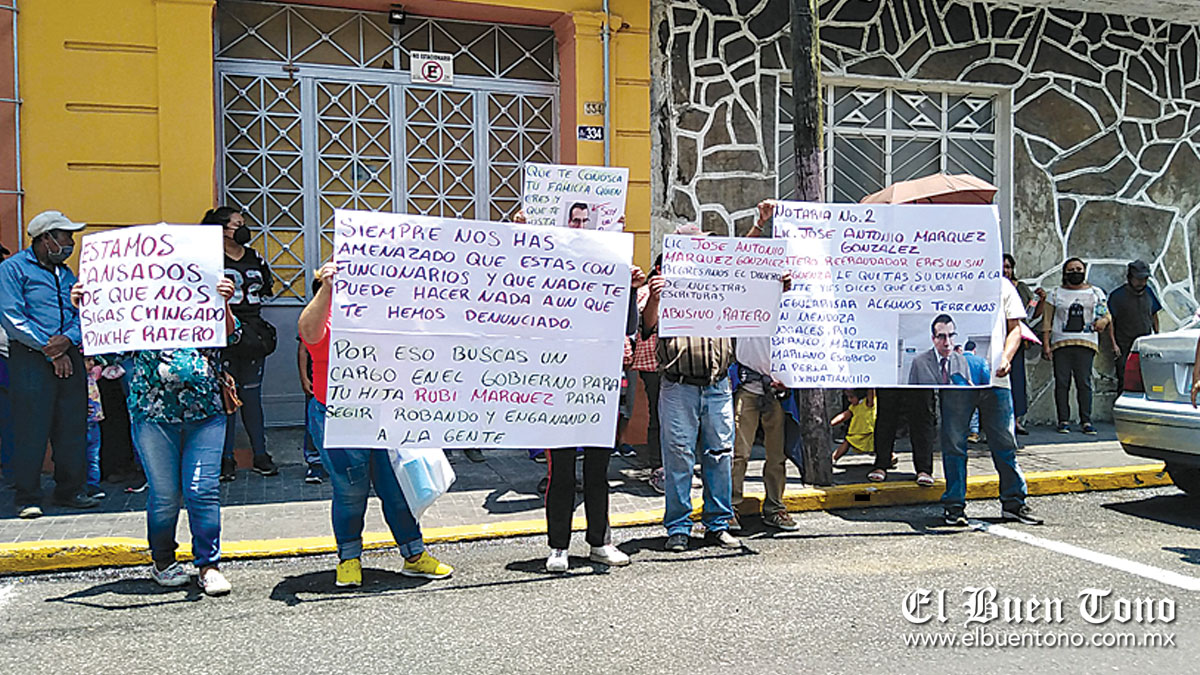 NO ESTACIONAR
E
334
334
ESTAMOS
CANSADOS
DE QUE NOS
SIGAS CHINGAΝDO
PINCHE RATERO
SIEMPRE NOS HAS
AMENAZADO QUE ESTAS CON
FUNCIONARIOS Y QUE NADIE TE
PUEDE HACER NADA AUN QUE
TE HEMOS DENUNCIADO.
POR ESO BUSCAS UN
CARGO EN EL GOBIERNO PARA
TU HIJA RUBI MARQUEZ PARA
SEGIR ROBANDO Y ENGANANDO
A LA GENTE
QUE TE CONOSCA
TU FAMILIA QUIEN
ERES Y
QUE TE
SOY
UN
LIC JOSE ANTONIO
MARQUEZ GONZALEZ
REGRESANOS EL DINERO
DE NUESTRAS
ESCRITURAS
ABUSIVO, RATERO
NOTARIA No. 2
LIC. JOSE ANTONIO MARQUEZ
GONZALEZ
TERO REFRAUDADOR ERES UN SIN
GUENZA LE QUITAS SU DINERO A LA
TE Y LES DICES QUE LES VAS A
REGULARISAR ALGUNOS TERRENOS
EN MENDOZA
NOGALES, RIO
BLANCO, MALTRATA
MARIANO ESCOBEDO
LA PERLA Y
IXHUATLANCILLO
El Buen Tono
www.elbuentono.com.mx